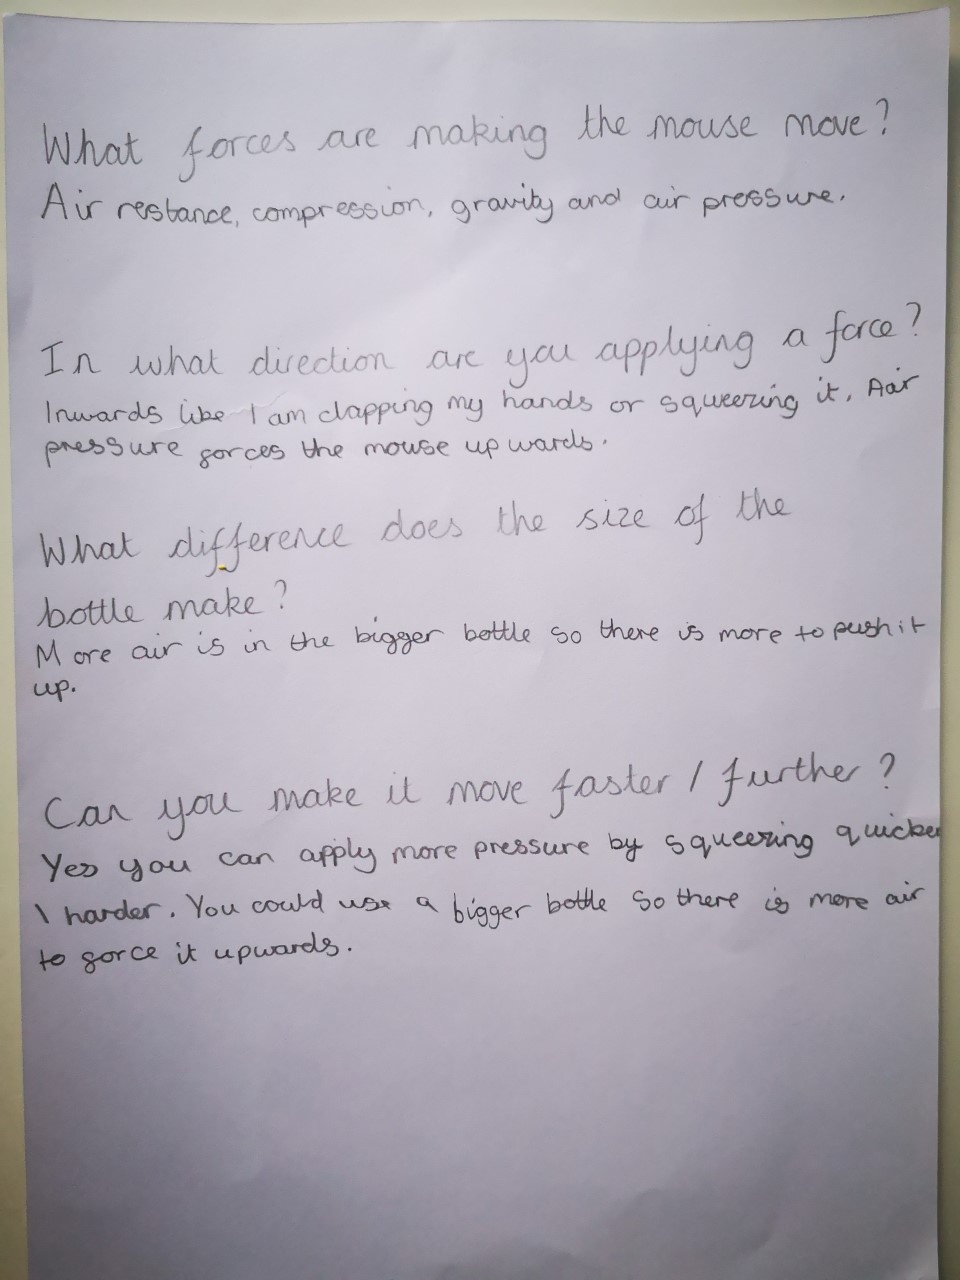 What forces are making the mouse move?
Air restance, compression, gravity and air pressure.
In what direction are you applying a force?
Inwards like I am clapping my hands or squeezing it. Aair
pressure forces the mouse upwards.
What difference does the size of the
bottle make?
More air is in the bigger bottle so there is more to push it
up.
Can you make it move faster / further?
Yes you can apply more pressure by squeezing quicker
\ harder. You could use a bigger bottle so there is more air
to force it upwards.